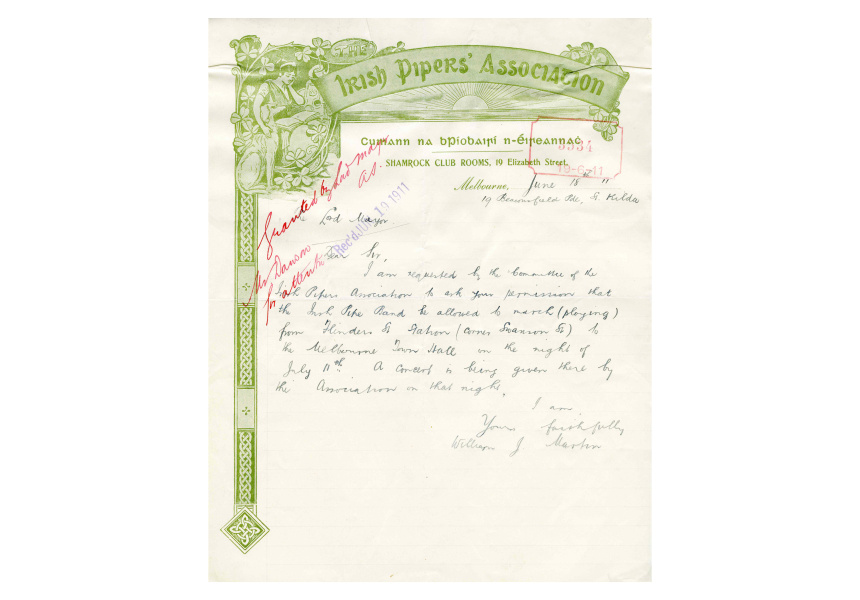 THE
IRISH PIPERS' ASSOCIATION
Cumann na bPíobairí n-Éireannaċ
SHAMROCK CLUB ROOMS, 19 Elizabeth Street.
3534
19-6-11
Melbourne, June 18th 11
19 Beaconsfield Pde, St Kilda
Granted by Lord Mayor
AS.
Rec'd JUN 19 1911
Mr Dawson
for attention
Lord Mayor
Dear Sir,
I am requested by the Committee of the
Irish Pipers Association to ask your permission that
the Irish Pipe Band be allowed to march (playing)
from Flinders St Station (corner Swanson St) to
the Melbourne Town Hall on the night of
July 11th. A Concert is being given there by
the Association on that night.
I am
Yours faithfully
William J Martin